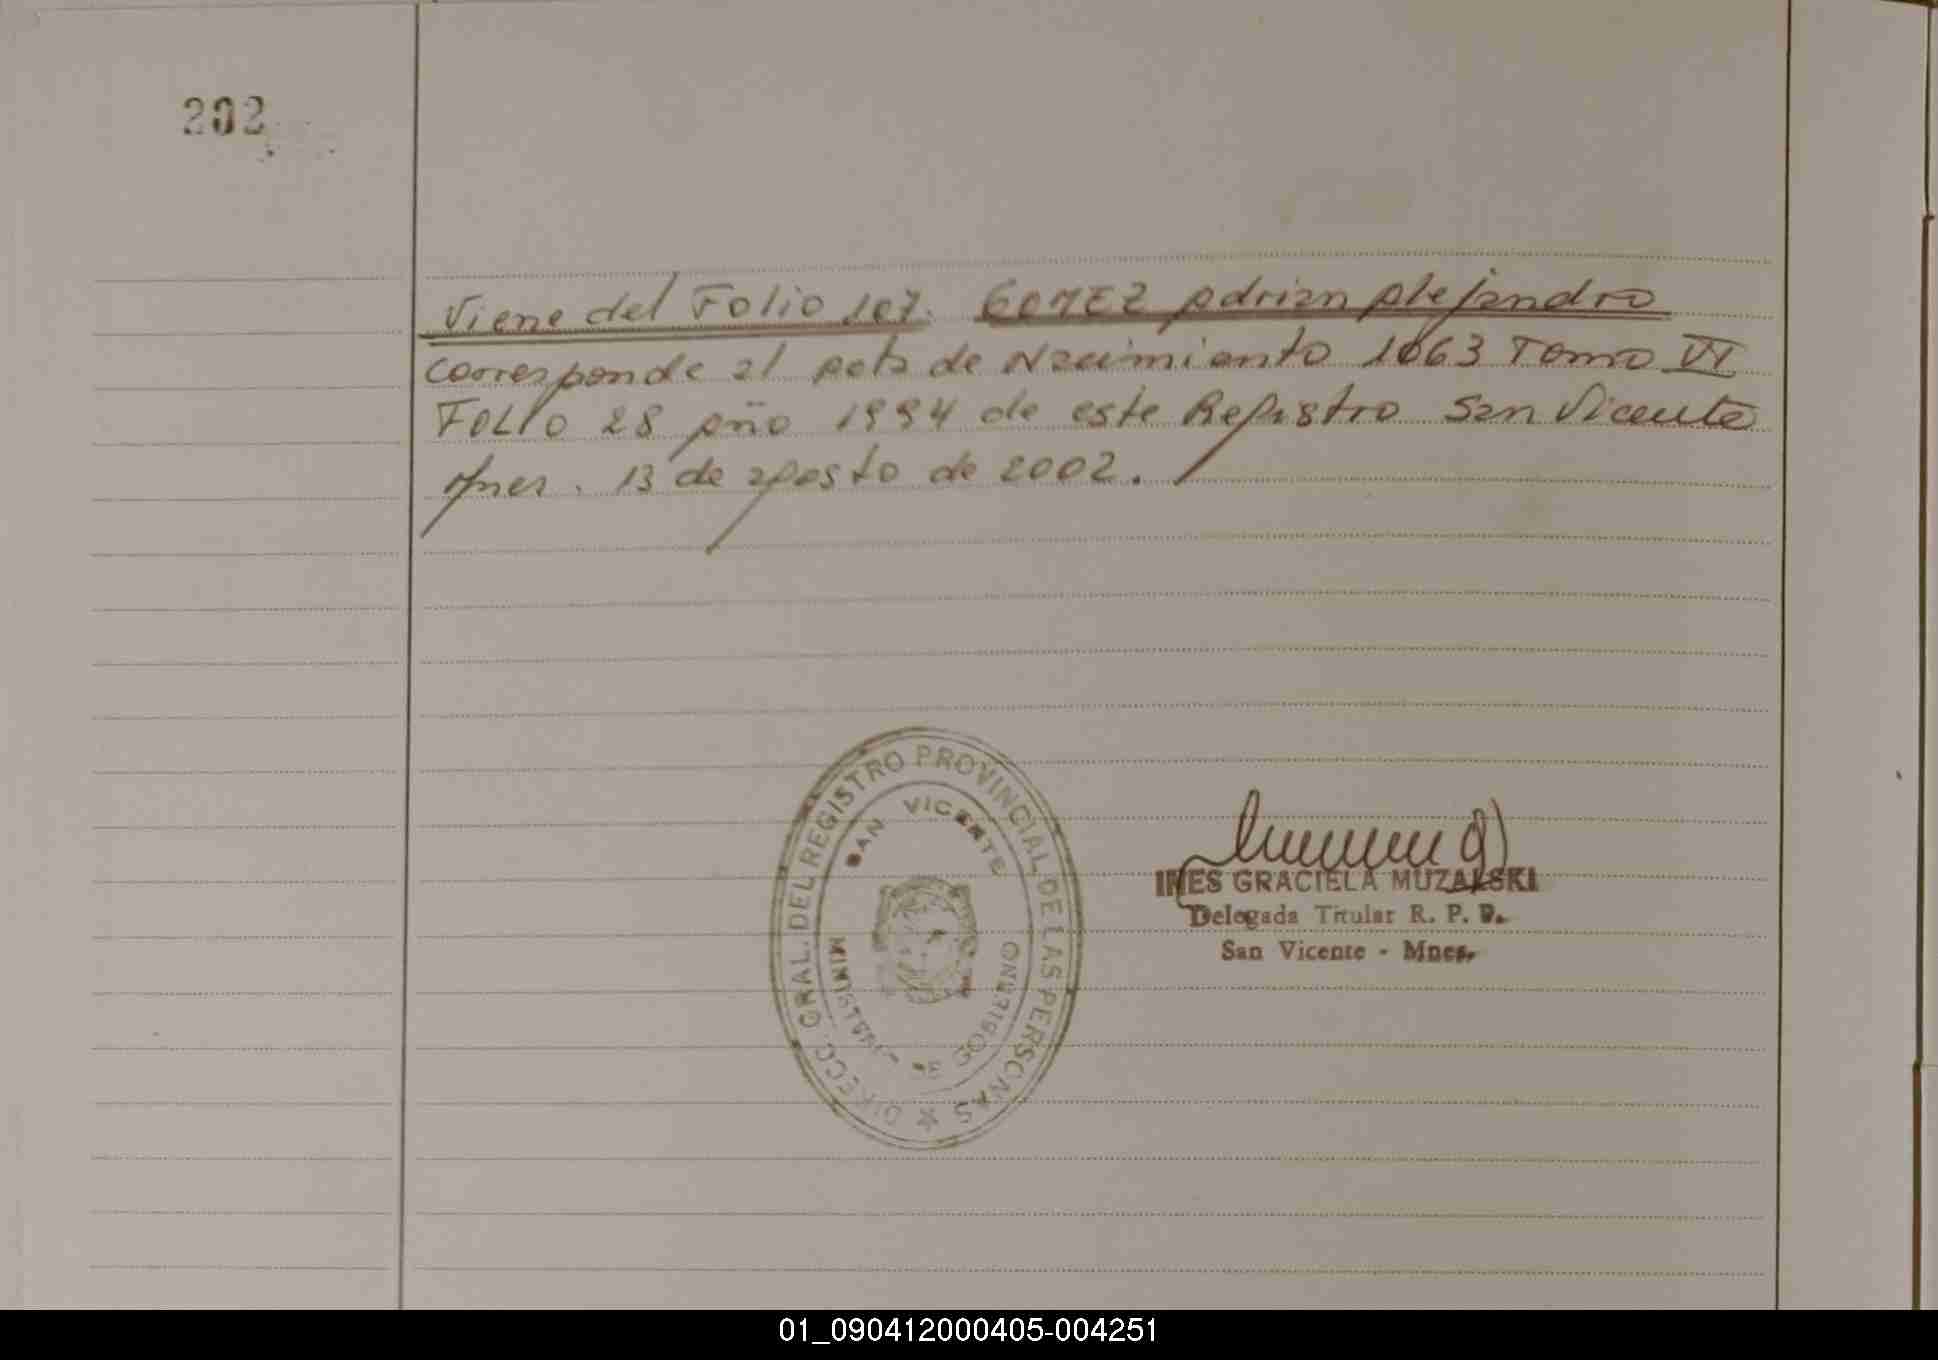 202
Viene del Folio 107. GOMEZ Adrian Alejandro
corresponde al Acta de Nacimiento 1063 Tomo VI
FOLIO 28 Año 1994 de este Registro San Vicente
Mnes. 13 de agosto de 2002.
DIRECC. GRAL. DEL REGISTRO PROVINCIAL DE LAS PERSONAS
SAN VICENTE
MINISTERIO DE GOBIERNO
INES GRACIELA MUZALSKI
Delegada Titular R. P. P.
San Vicente - Mnes.
01_090412000405-004251